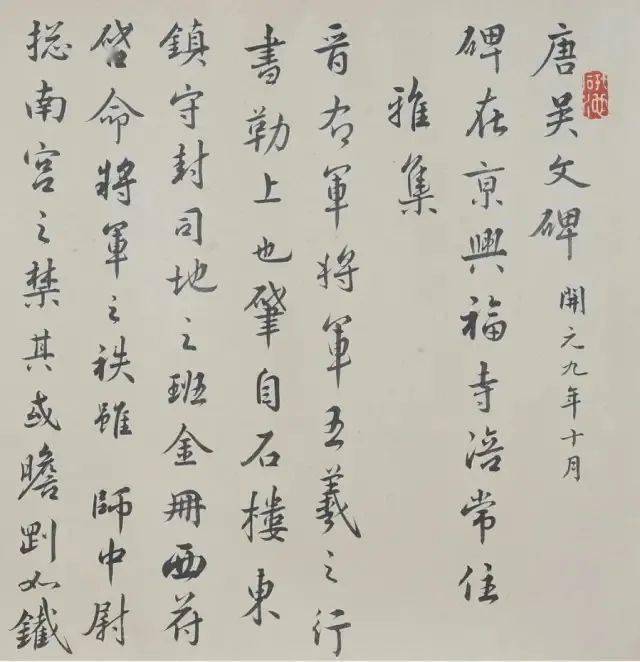 唐吴文碑 開元九年十月
碑在京興福寺涪常住
雅集
晋右軍將軍王羲之行
書勒上也肇自石樓東
鎮守封司地之班金冊西符
啓命將軍之秩雖師中尉
捴南宫之禁其或瞻如鐵